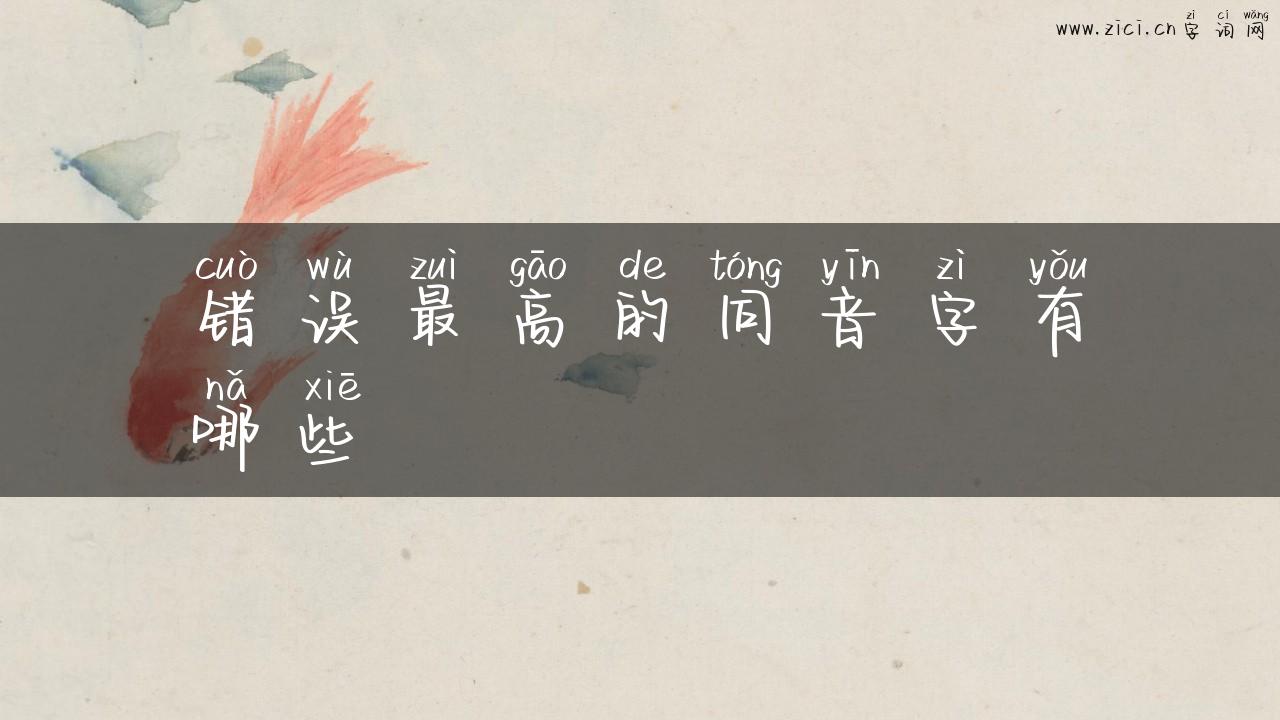 zì cí wǎng
www.zici.cn 字 词 网
cuò wù zuì gāo de tóng yīn zì yǒu
错 误 最 高 的 同 音 字 有
nǎ xiē
哪 些